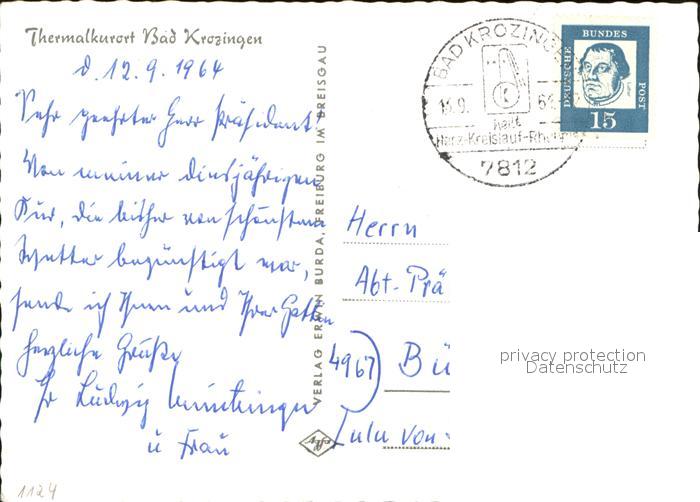 Thermalkurort Bad Krozingen
d. 12.9.1964
Sehr geehrter Herr Präsident!
Von meiner diesjährigen
Kur, die bisher von schönstem
Wetter begünstigt war,
sende ich Ihnen und Ihrer Gattin
herzliche Grüße
Ihr Ludwig
u Frau
VERLAG ERWIN BURDA, FREIBURG IM BREISGAU
Agfa
BAD KROZINGEN
heilt
Herz-Kreislauf-Rheuma
7812
DEUTSCHE BUNDES POST
Luther
15
Herrn
Abt.-Prä
4967
Bü
Lulu von
privacy protection
Datenschutz
1124